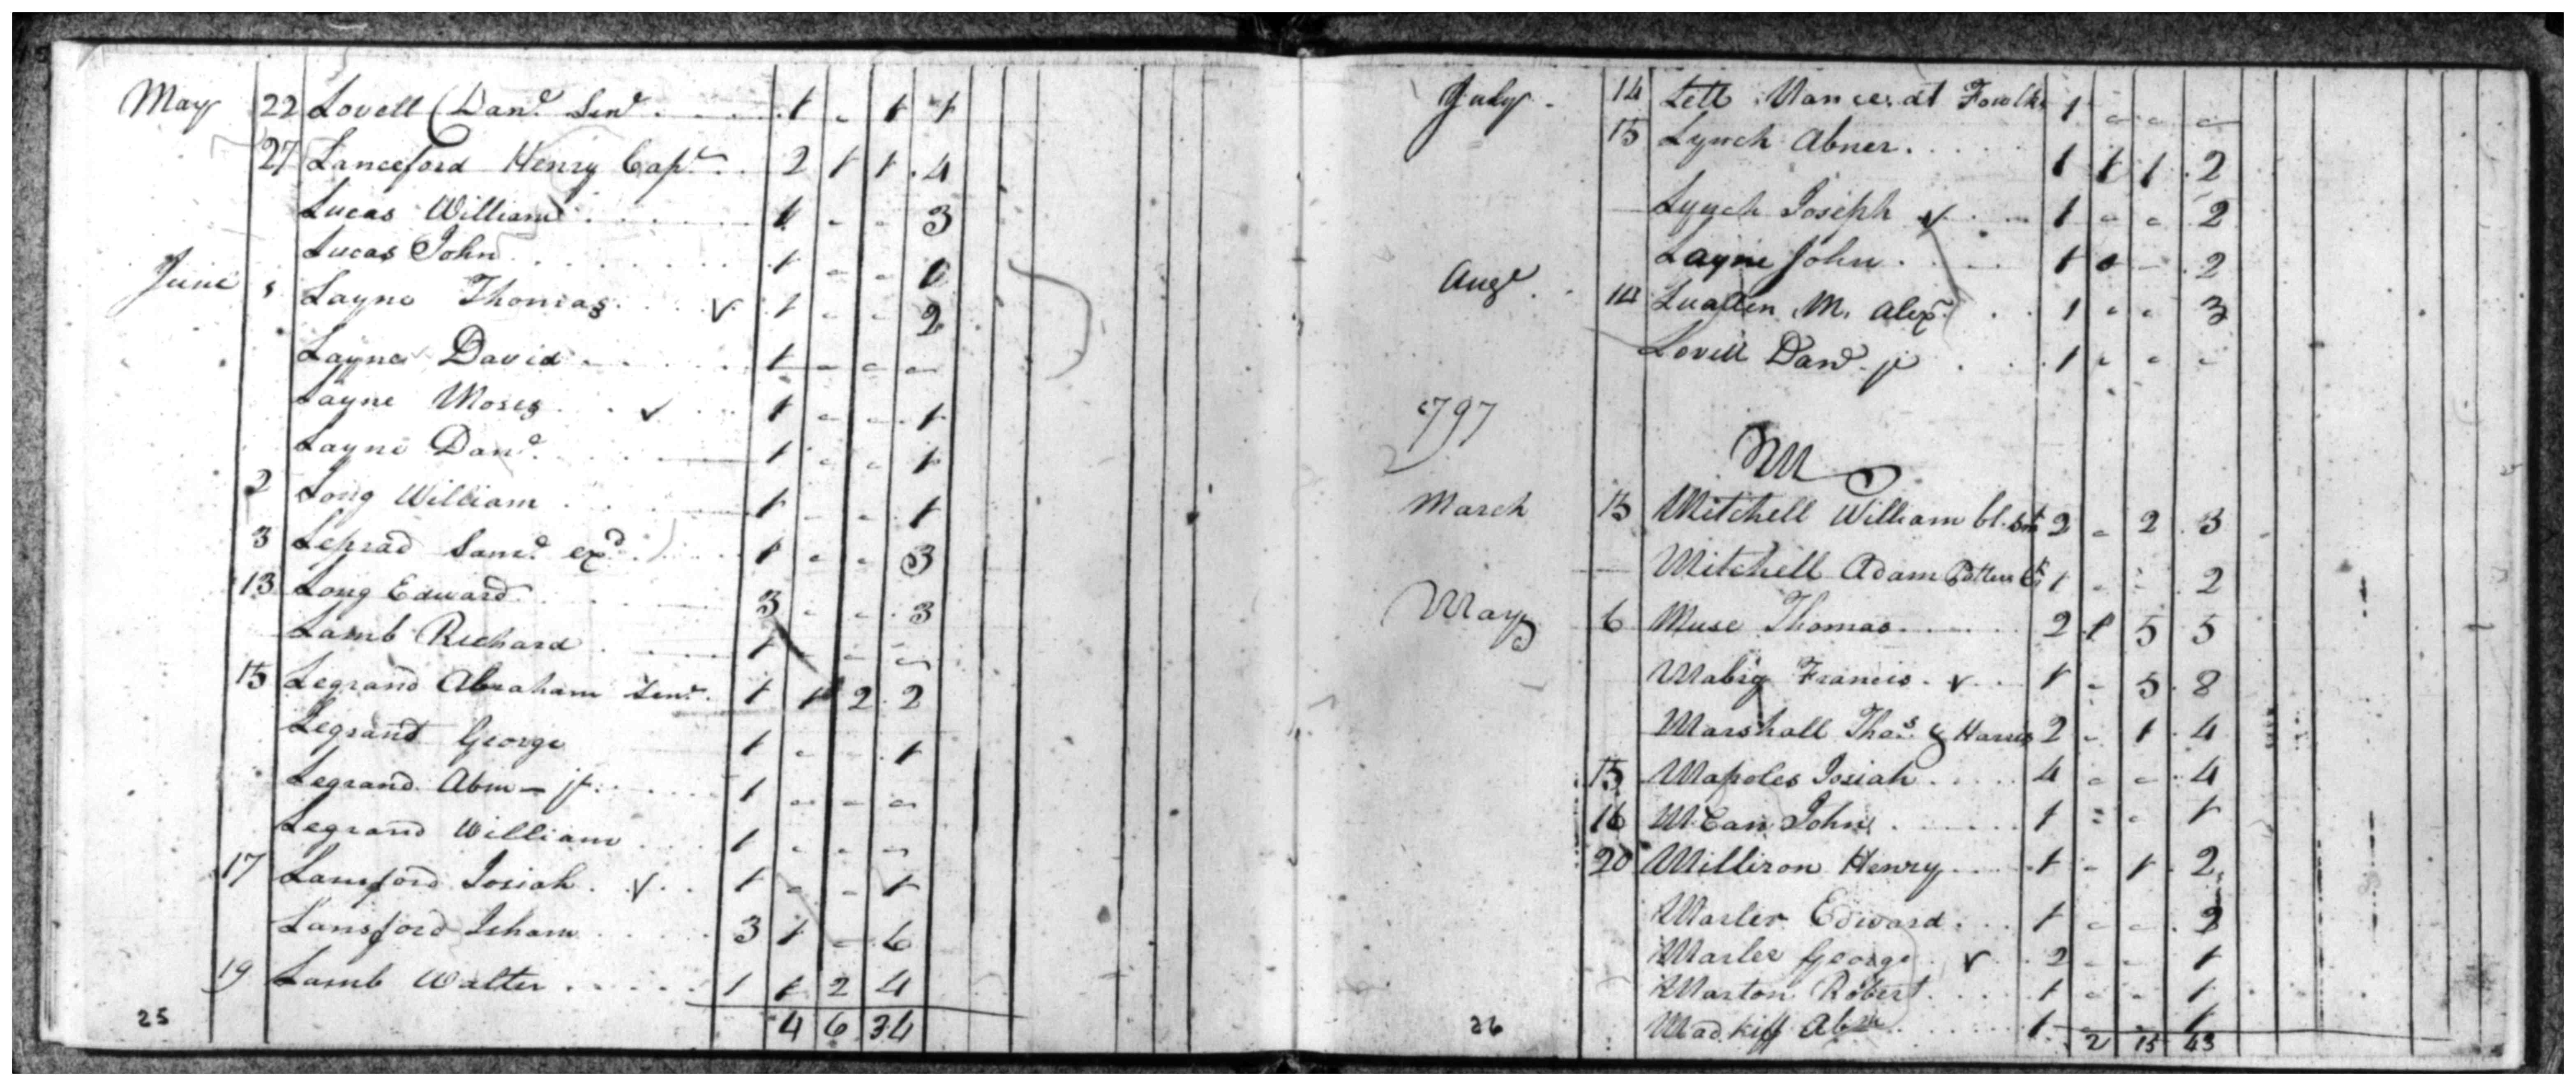 May 22 Lovell (Dan.l Sen.r 1 - 1 1
27 Lanceford Henry Cap.t 2 1 1 4
Lucas William 1 - - 3
Lucas John 1 - - 1
June 1 Layne Thomas v 1 - - 2
Layne David 1 - - -
Layne Moses v 1 - - 1
Layne Dan.l 1 - - 1
2 Long William 1 - - 1
3 Sam.l ex.d 1 - - 3
13 Long Edward 3 - - 3
Lamb Richard 1 - - -
15 Legrand Abraham Sen.r 1 1 2 2
Legrand George 1 - - 1
Legrand Abm - jr. 1 - - -
Legrand William 1 - - -
17 Lansford Josiah v 1 - - 1
Lansford Isham 3 1 - 6
19 Lamb Walter 1 1 2 4
25 4 6 34
July 14 Lett Vance at 1 - - -
15 Lynch Abner 1 1 1 2
Lynch Joseph v 1 - - 2
Layne John 1 - - 2
Aug.t 14 M. Alex.r 1 - - 3
Lovell Dan.l jr 1 - - -
1797
M
March 15 Mitchell William bl. Smt 2 - 2 3
Mitchell Adam 1 - - 2
May 6 Muse Thomas 2 1 5 5
Mabry Francis v 1 - 5 8
Marshall Tho.s & Harris 2 - 1 4
15 Mapoles Josiah 4 - - 4
16 McCan John 1 - - 1
20 Milliron Henry 1 - 1 2
Marler Edward 1 - - 2
Marler George v 2 - - 1
Marton Robert 1 - - 1
Madkiff Abm 1 - - 1
26 2 15 43